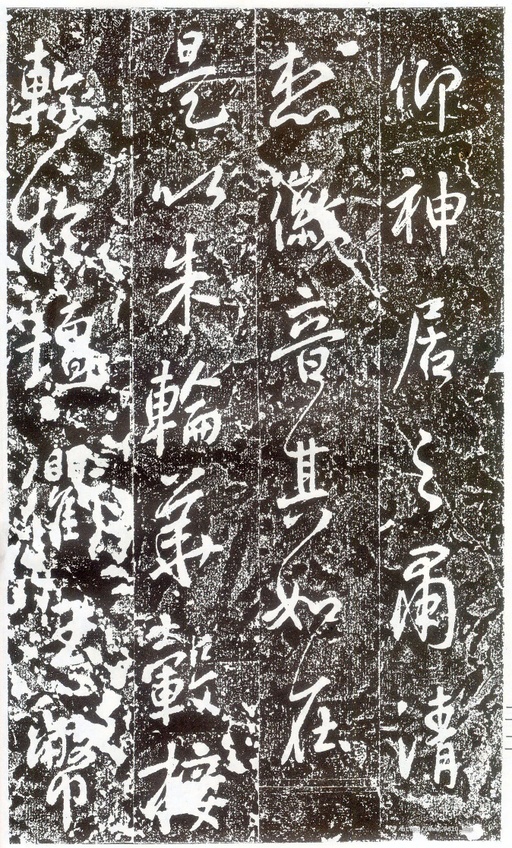 仰神居之肅清
想徽音其如在
是以朱輪華轂接
軫於壇衢玉幣